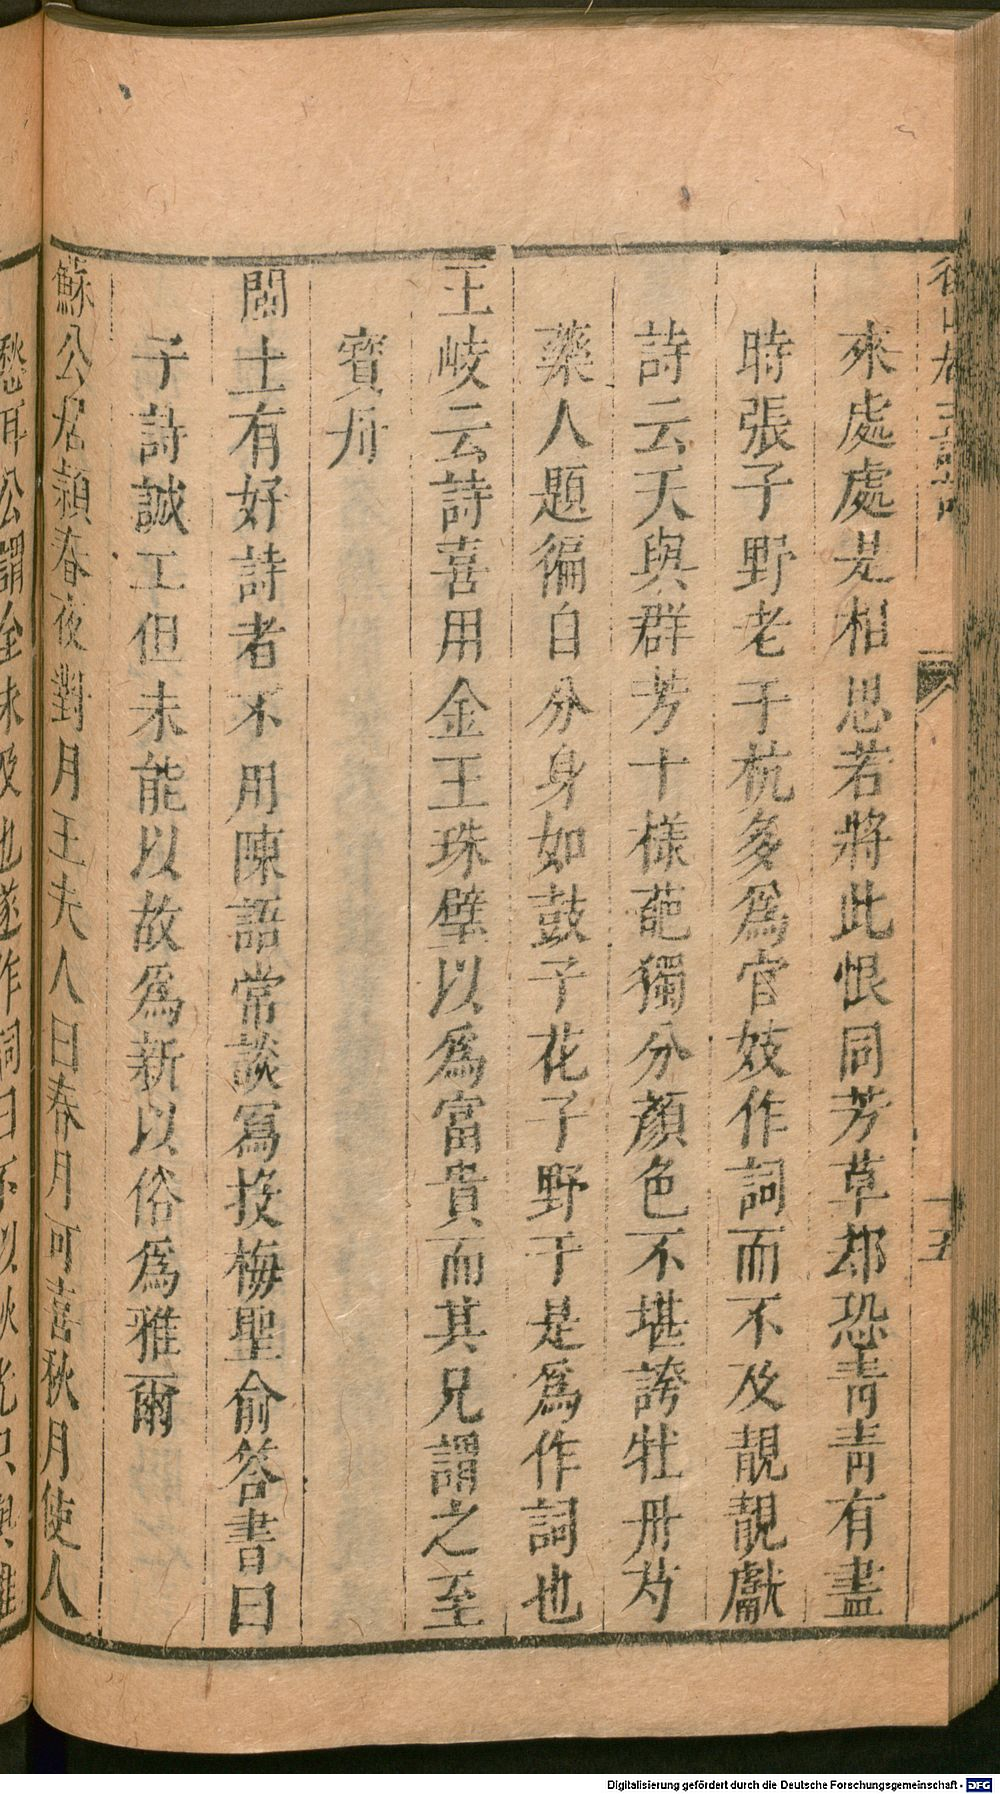 來處處是相思若將此恨同芳草郄恐青青有盡
時張子野老于杭多爲官妓作詞而不及靚靚獻
詩云天與群芳十樣葩獨分顏色不堪誇牡丹芍
藥人題徧自分身如鼓子花子野于是爲作詞也
王岐云詩喜用金王珠璧以爲富貴而其兄謂之至
寳丹
閩士有好詩者不用陳語常談冩投梅聖俞答書曰
子詩誠工但未能以故爲新以俗爲雅爾
蘇公居潁春夜對月王夫人曰春月可喜秋月使人
愁耳公謂全未及也遂作詞曰不似秋光只與離
十五
Digitalisierung gefördert durch die Deutsche Forschungsgemeinschaft - DFG